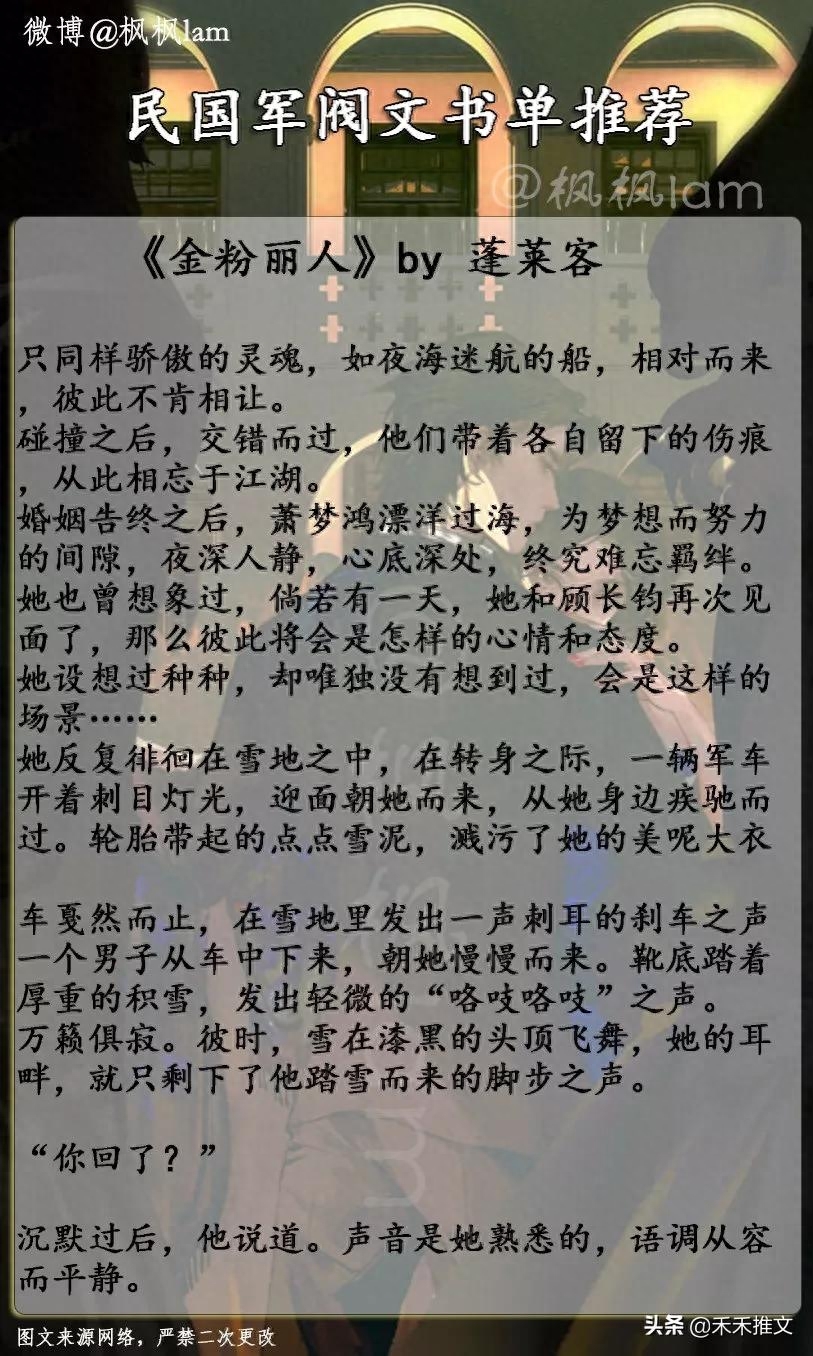 微博@枫枫lam
民国军阀文书单推荐
@枫枫lam
《金粉丽人》by 蓬莱客
只同样骄傲的灵魂，如夜海迷航的船，相对而来
，彼此不肯相让。
碰撞之后，交错而过，他们带着各自留下的伤痕
，从此相忘于江湖。
婚姻告终之后，萧梦鸿漂洋过海，为梦想而努力
的间隙，夜深人静，心底深处，终究难忘羁绊。
她也曾想象过，倘若有一天，她和顾长钧再次见
面了，那么彼此将会是怎样的心情和态度。
她设想过种种，却唯独没有想到过，会是这样的
场景……
她反复徘徊在雪地之中，在转身之际，一辆军车
开着刺目灯光，迎面朝她而来，从她身边疾驰而
过。轮胎带起的点点雪泥，溅污了她的美呢大衣
车戛然而止，在雪地里发出一声刺耳的刹车之声
一个男子从车中下来，朝她慢慢而来。靴底踏着
厚重的积雪，发出轻微的“咯吱咯吱”之声。
万籁俱寂。彼时，雪在漆黑的头顶飞舞，她的耳
畔，就只剩下了他踏雪而来的脚步之声。
“你回了？”
沉默过后，他说道。声音是她熟悉的，语调从容
而平静。
图文来源网络，严禁二次更改
头条 @禾禾推文